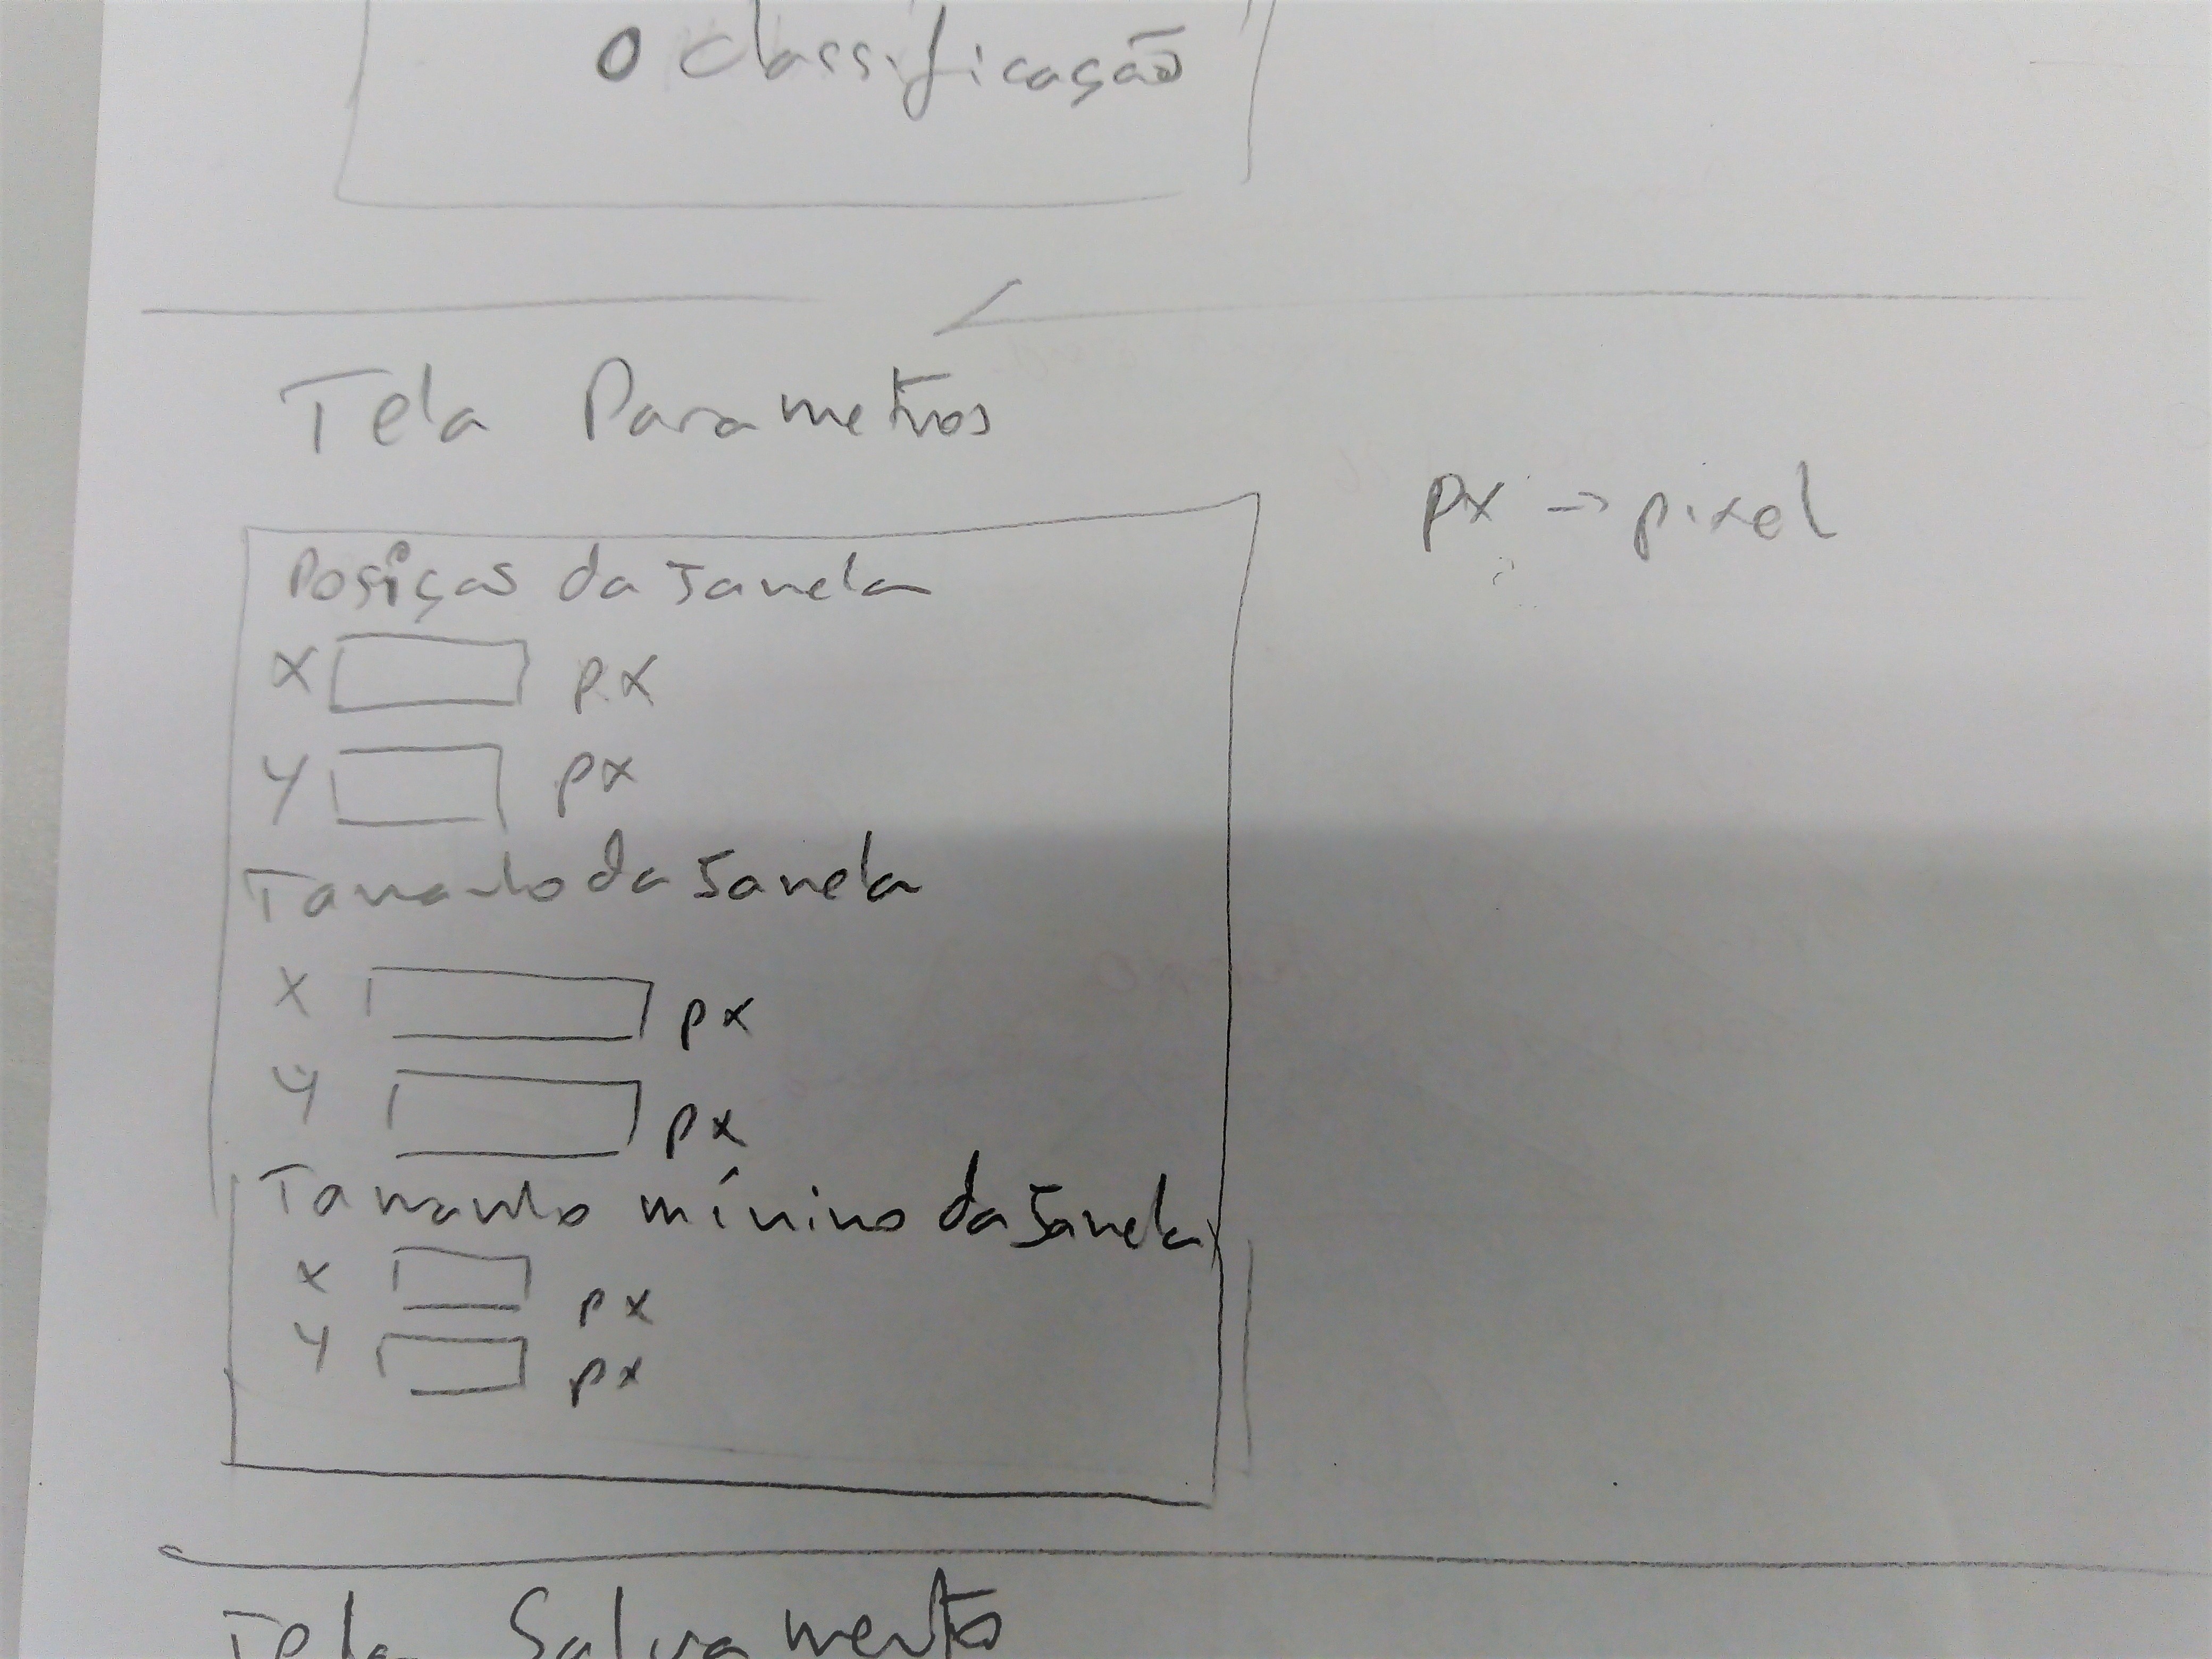 o classificação
Tela Parametros
px -> pixel
Posiças da Janela
X px
Y px
Tamanho da Janela
X px
Y px
Tamanho mínimo da Janela
X px
Y px
Tela Salvamento